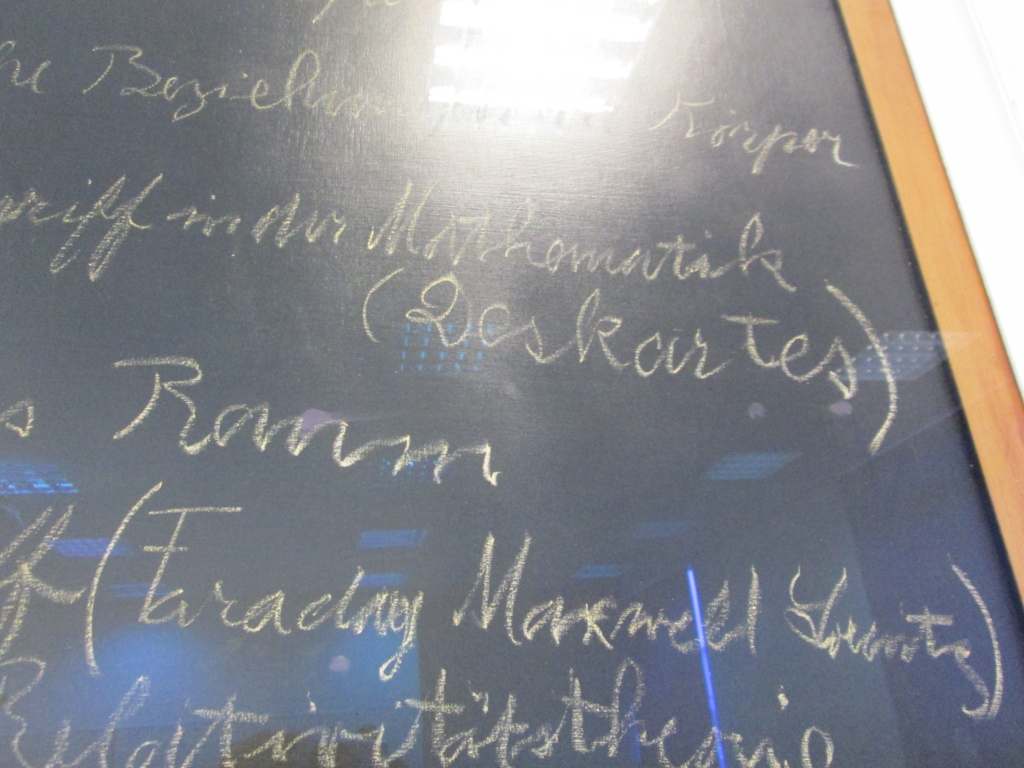 he Beziehun Körper
griff in der Mathematik
(Deskartes)
s Raum
ff (Faraday Maxwell Lorentz)
Relativitätstheorie